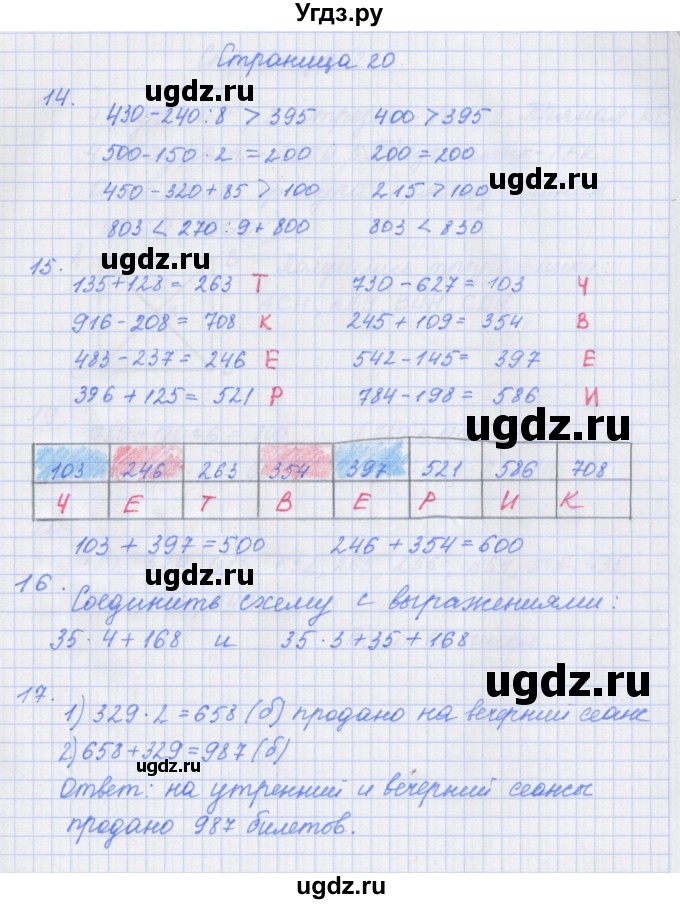 Угдз.ру
Страница 20
14.
430-240:8 > 395 400 > 395
ugdz.ru
500-150·2 = 200 200 = 200
450-320+85 > 100 215 > 100
ugdz.ru
803 < 270:9+800 803 < 830
ugdz.ru
15.
135+128 = 263 Т 730-627 = 103 Ч
916-208 = 708 К 245+109 = 354 В
483-237 = 246 Е 542-145 = 397 Е
ugdz.ru
396+125 = 521 Р 784-198 = 586 И
ugdz.ru
103 246 263 354 397 521 586 708
Ч Е Т В Е Р И К
103 + 397 = 500 246 + 354 = 600
ugdz.ru
16.
Соединить схему с выражениями:
35·4+168 и 35·3+35+168
ugdz.ru
17.
1) 329·2 = 658 (б) продано на вечерний сеанс
2) 658+329 = 987 (б)
ugdz.ru
Ответ: на утренний и вечерний сеансы
продано 987 билетов.
ugdz.ru
ugdz.ru